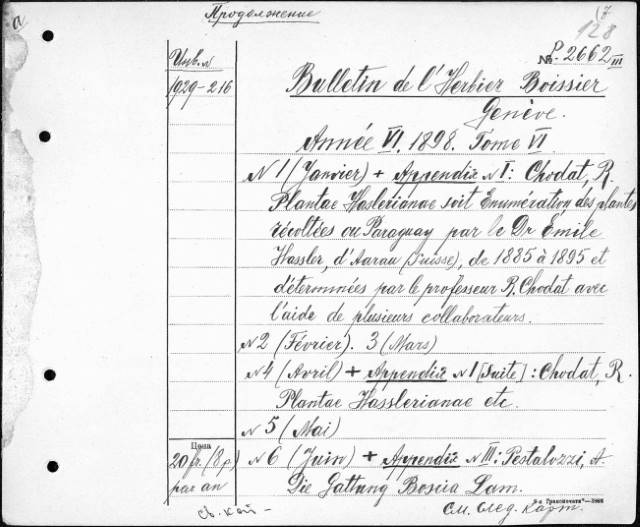 Продолжение
а
128
№ P-2662 III
Инв. №
1929-216
Bulletin de l'Herbier Boissier
Genève.
Année VI, 1898. Tome VI
N 1 (Janvier) + Appendix N I: Chodat, R.
Plantae Haslerianae soit Enumération des plantes
récoltées au Paraguay par le Dr Émile
Hassler, d'Aarau (Suisse), de 1885 à 1895 et
déterminées par le professeur R. Chodat avec
l'aide de plusieurs collaborateurs.
N 2 (Février). 3 (Mars)
N 4 (Avril) + Appendix N I [Suite]: Chodat, R.
Plantae Hasslerianae etc.
N 5 (Mai)
Цена
20 fr. (8 р.)
par an
N 6 (Juin) + Appendix N III: Pestalozzi, A.
Die Gattung Boscia Lam.
См. след. карт.